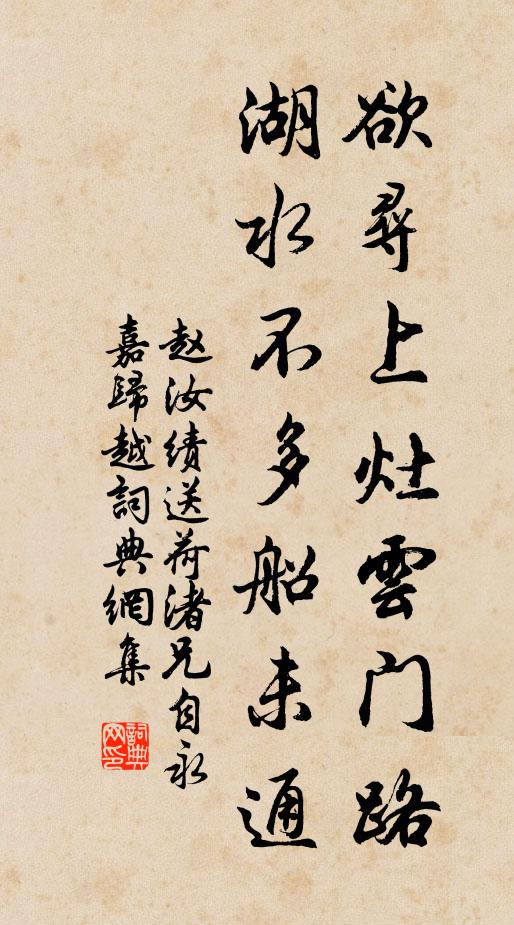 欲尋上灶雲门路
湖水不多船未通
赵汝绩送荷渚兄自永
嘉歸越詞典網集
詞典
网印